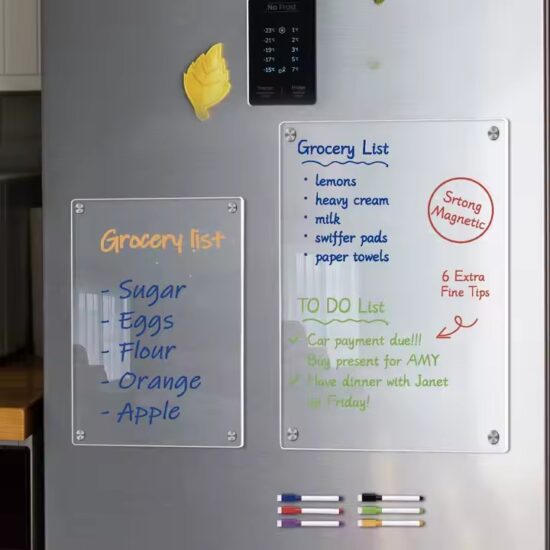 No Frost
-23°C
1°C
-21°C
2°C
-19°C
3°C
-17°C
5°C
-15°C
7°C
Freezer
Fridge
Grocery list
- Sugar
- Eggs
- Flour
- Orange
- Apple
Grocery List
• lemons
• heavy cream
• milk
• swiffer pads
• paper towels
Srtong
Magnetic
6 Extra
Fine Tips
TO DO List
✓ Car payment due!!!
Buy present for AMY
✓ Have dinner with Janet
on Friday!